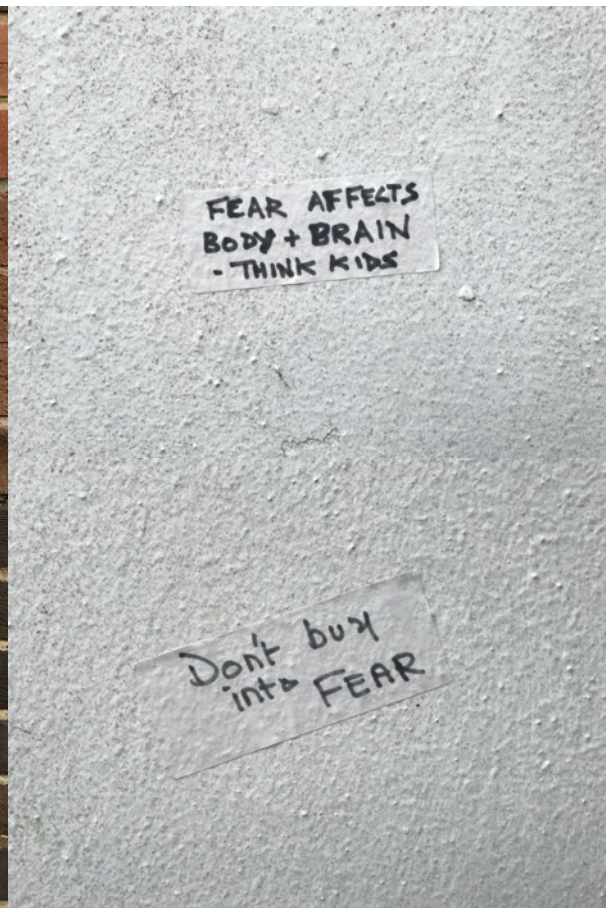 FEAR AFFECTS
BODY + BRAIN
- THINK KIDS
Don't buy
into FEAR